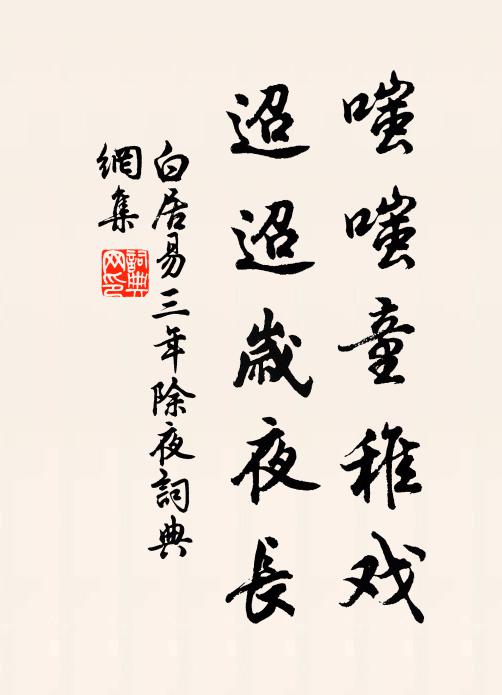 嗤嗤童稚戏
迢迢歲夜長
白居易三年除夜詞典
網集
詞典网印